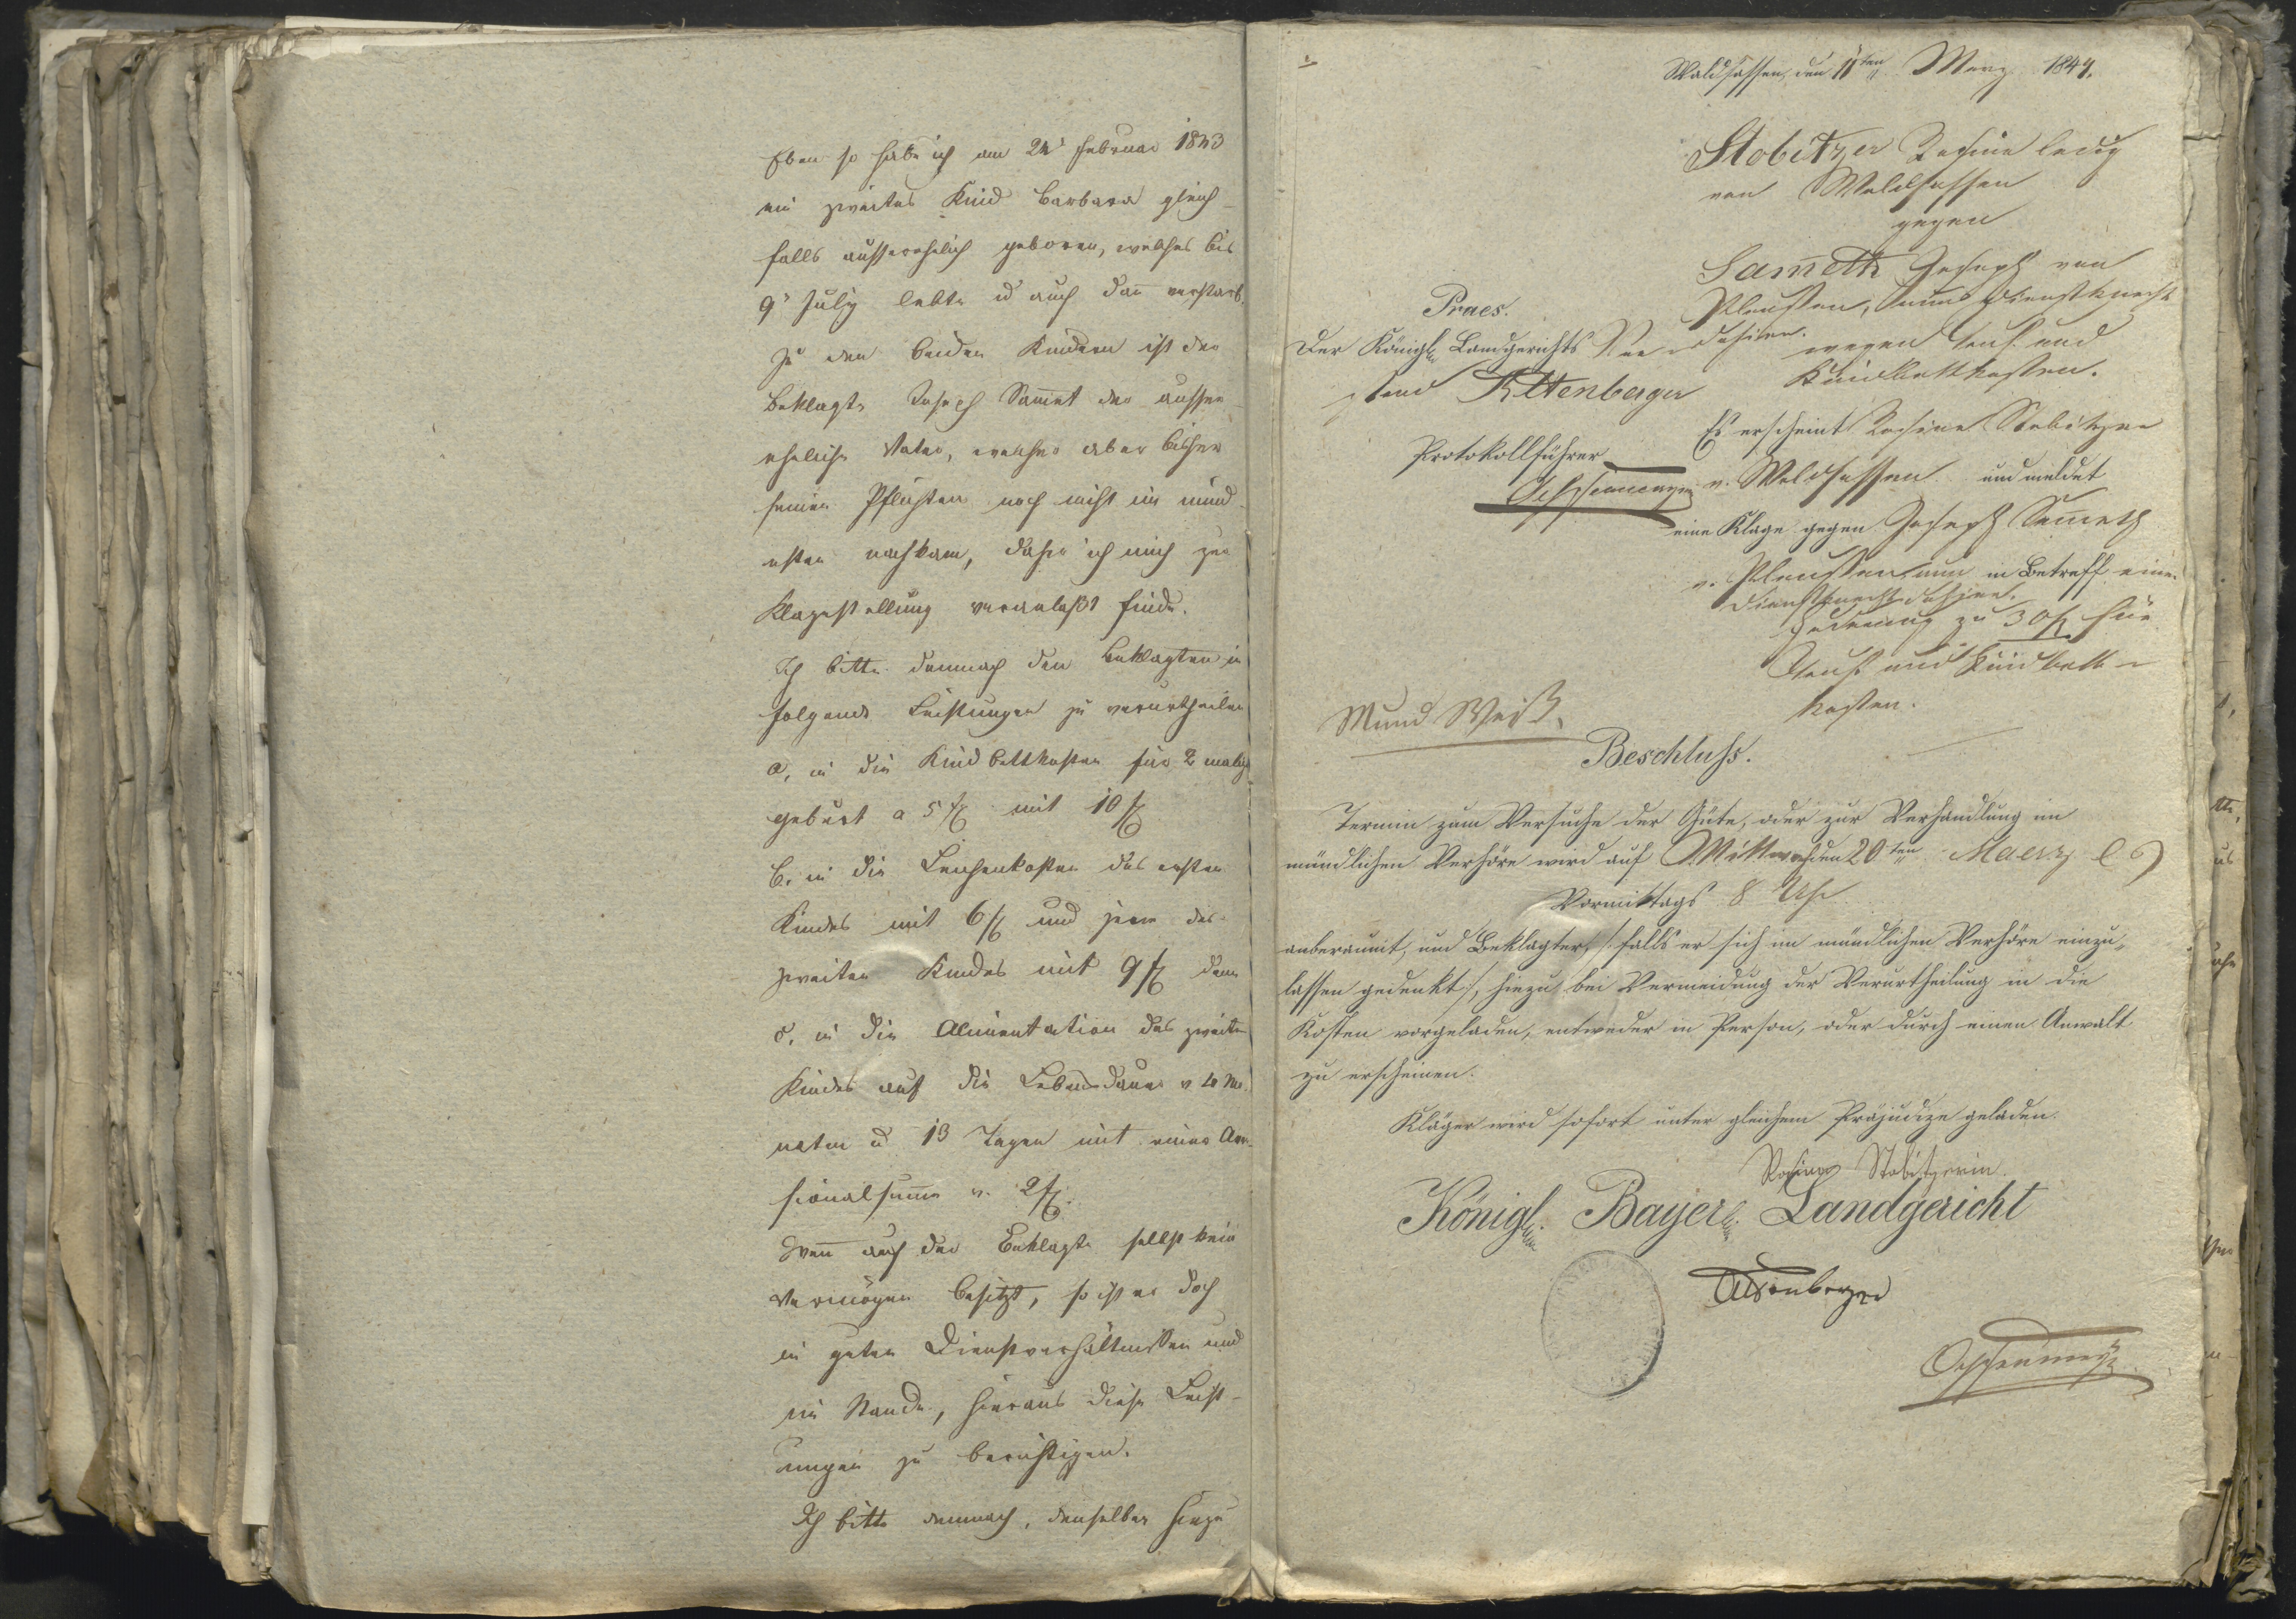 Eben so habe ich am 24' Februar 1843
ein zweites Kind Barbara gleich-
falls ausserehelich geboren, welches bis
9' July lebte u auch dan̄ verstarb.
Zu den beiden Kindern ist der
Beklagte Joseph Sam̄et der ausser-
eheliche Vater, welcher aber bisher
seinen Pflichten noch nicht im mind-
esten nachkam, daher ich mich zur
Klagestellung veranlaßt finde.
Ich bitte demnach den Beklagten in
folgende Leistungen zu verurtheilen
a, in die Kindbettkosten für 2 malige
geburt a 5 f mit 10 f
b. in die Leichenkosten des ersten
Kindes mit 6 f und jene des
zweiten Kindes mit 9 f dann
c. in die Alimentation des zweiten
Kindes auf die Lebensdauer v 4 Mo-
naten u 13 Tagen mit einer
sum̄e v. 2 f.
Wen̄ auch der Beklagte selbst kein
Vermögen besitzt, so ist er doch
in guten Dienstverhältnissen und
im Stande, hieraus diese Leist-
ungen zu berichtigen.
Ich bitte demnach, denselben hiezu
Waldsassen, den 11ten Merz 1844.
Stobitzer Rosine ledig
von Waldsassen
gegen
Sam̄eth Joseph von
Pleussen, nun Dienstknecht
dahier.
wegen Tauf und
Kindbettkosten.
Praes.
Der Königl. Landgerichts Vor-
stand Altenberger
Protokollführer
Es erscheint Rosine Stobitzer
v. Waldsassen und meldet
eine Klage gegen Joseph Sam̄eth
v. Pleussen, nun in Betreff einer
Dienstknecht dahier.
Foderung zu 30 f für
Tauf und Kindbett-
kosten.
Mund Weiß.
Beschluß.
Termin zum Versuche der Güte, oder zur Verhandlung im
mündlichen Verhöre wird auf Mittwoch den 20ten Maerz
Vormittags 8 Uhr
anberaumt, und Beklagter, /: falls er sich im mündlichen Verhöre einzu-
lassen gedenkt :/, hiezu bei Vermeidung der Verurtheilung in die
Kosten vorgeladen, entweder in Person, oder durch einen Anwalt
zu erscheinen.
Kläger wird sofort unter gleichem Präjudize geladen.
Rosina Stobitzerin.
Königl. Bayer. Landgericht
Altenberger